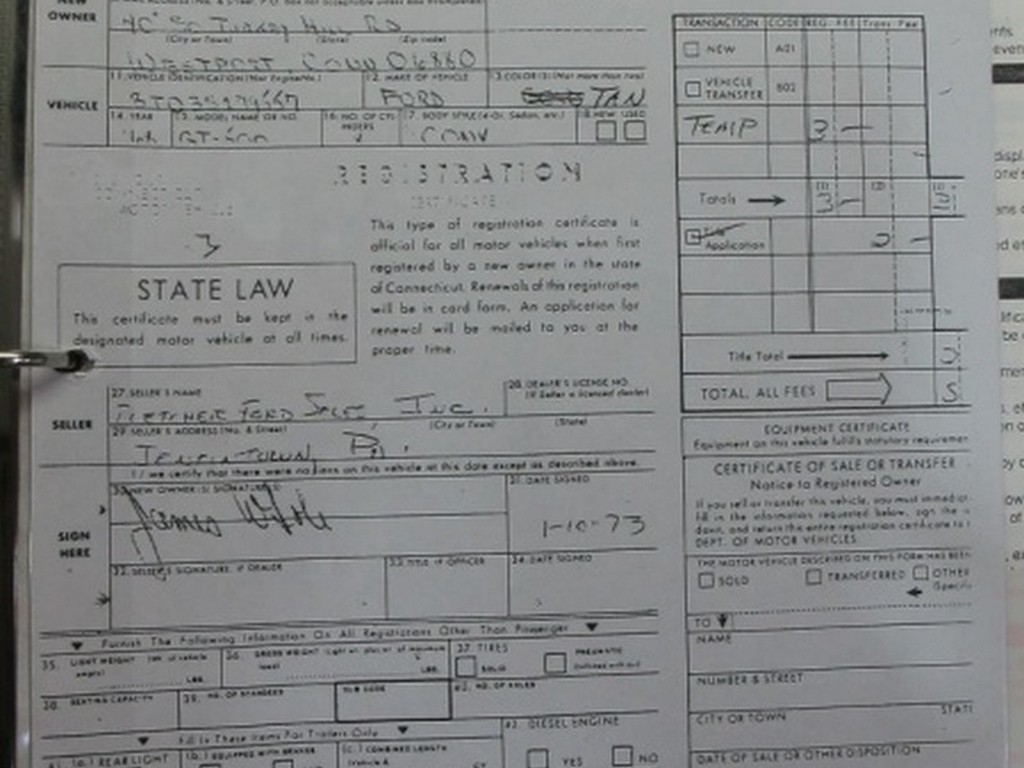 NEW OWNER
(City or Town) (State) (Zip code)
WESTPORT, CONN 06880
VEHICLE
12. MAKE OF VEHICLE
FORD TAN
14. YEAR 15. MODEL NAME OR NO.
CONV
REGISTRATION
CERTIFICATE
3
This type of registration certificate is
official for all motor vehicles when first
registered by a new owner in the state
of Connecticut. Renewals of this registration
will be in card form. An application for
renewal will be mailed to you at the
proper time.
STATE LAW
This certificate must be kept in the
designated motor vehicle at all times.
TRANSACTION CODE REG. FEE Trans. Fee
NEW A01
VEHICLE TRANSFER 802
TEMP 3 —
Totals (1) 3 — (2)
Application 2 —
Title Total
TOTAL, ALL FEES
SELLER
27. SELLER'S NAME 28. DEALER'S LICENSE NO.
(If Seller a licensed dealer)
FORD SALES INC.
29. SELLER'S ADDRESS (No. & Street) (City or Town) (State)
Pa.
I/we certify that there were no liens on this vehicle at this date except as described above.
SIGN HERE
30. NEW OWNER(S) SIGNATURE(S) 31. DATE SIGNED
James 1-10-73
32. SELLER'S SIGNATURE, IF DEALER 33. TITLE IF OFFICER 34. DATE SIGNED
Furnish The Following Information On All Registrations Other Than Passenger
35. LIGHT WEIGHT LBS. 36. GROSS WEIGHT LBS. 37. TIRES SOLID PNEUMATIC
38. SEATING CAPACITY 39. NO. OF STANDEES SUB CODE NO. OF AXLES
Fill In These Items For Trailers Only
REAR LIGHT (b.) EQUIPPED WITH (c.) COMBINED LENGTH DIESEL ENGINE
YES NO
EQUIPMENT CERTIFICATE
Equipment on this vehicle fulfills statutory
CERTIFICATE OF SALE OR TRANSFER
Notice to Registered Owner
If you sell or transfer this vehicle, you must
fill in the information requested below, sign
down, and return the entire registration certificate to
DEPT. OF MOTOR VEHICLES.
THE MOTOR VEHICLE DESCRIBED ON THIS FORM HAS BEEN
SOLD TRANSFERRED OTHER
TO
NAME
NUMBER & STREET
CITY OR TOWN STATE
DATE OF SALE OR OTHER DISPOSITION